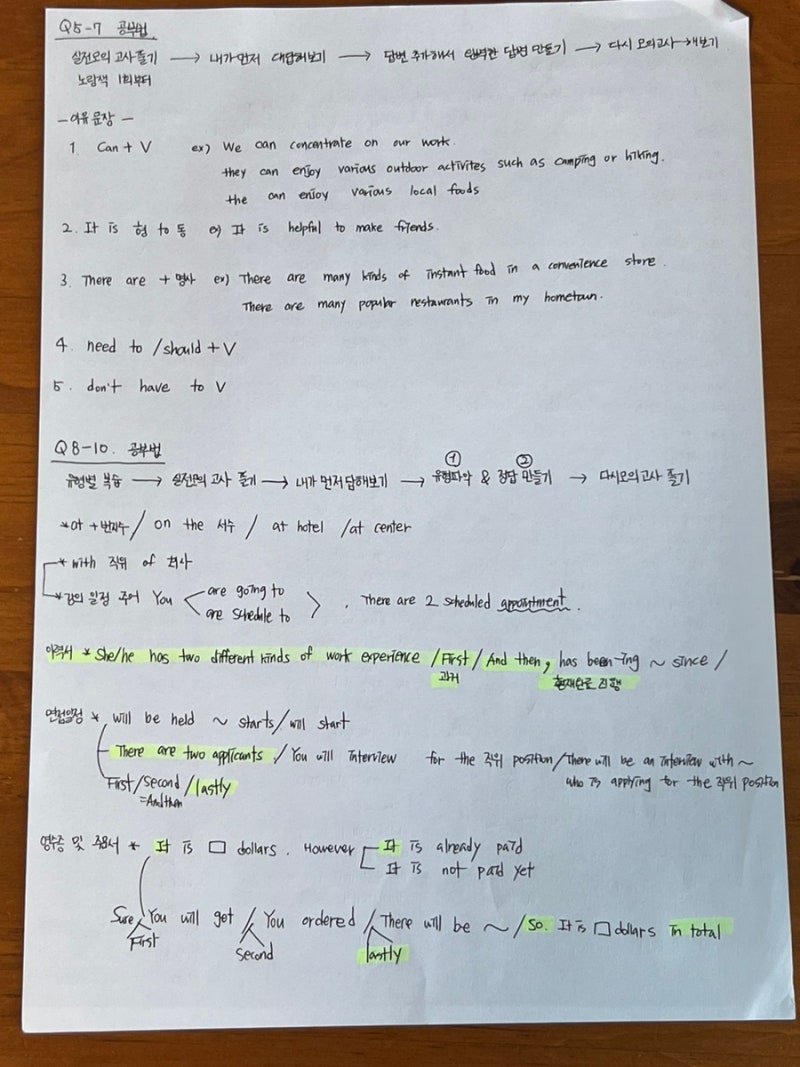 Q5-7 공부법
실전모의고사 풀기 → 내가먼저 대답해보기 → 답변 추가해서 완벽한 답변 만들기 → 다시 모의고사 해보기
노랑책 1회부터
- 이유문장 -
1. Can + V ex) We can concentrate on our work.
they can enjoy various outdoor activites such as camping or hiking.
the can enjoy various local foods
2. It is 형 to 동 ex) It is helpful to make friends.
3. There are + 명사 ex) There are many kinds of instant food in a convenience store.
There are many popular restaurants in my hometown.
4. need to / should + V
5. don't have to V
Q8-10. 공부법
① ②
유형별 복습 → 실전모의고사 풀기 → 내가 먼저 답해보기 → 유형파악 & 정답 만들기 → 다시모의고사 풀기
*at + 번지수 / on the 서수 / at hotel / at center
* with 직위 of 회사
* 강의 일정 주어 You < are going to
are schedule to > . There are 2 scheduled appointment.
이력서 * She/he has two different kinds of work experience / First / And then, has been -ing ~ since /
과거 현재완료 진행
면접일정 * will be held ~ starts / will start
There are two applicants. / You will interview for the 직위 position / There will be an interview with ~
First / second / lastly who is applying for the 직위 position
= And then
영수증 및 주문서 * It is □ dollars. However It is already paid
It is not paid yet
Sure, You will get / You ordered / There will be ~ / So. It is □ dollars in total
First second lastly